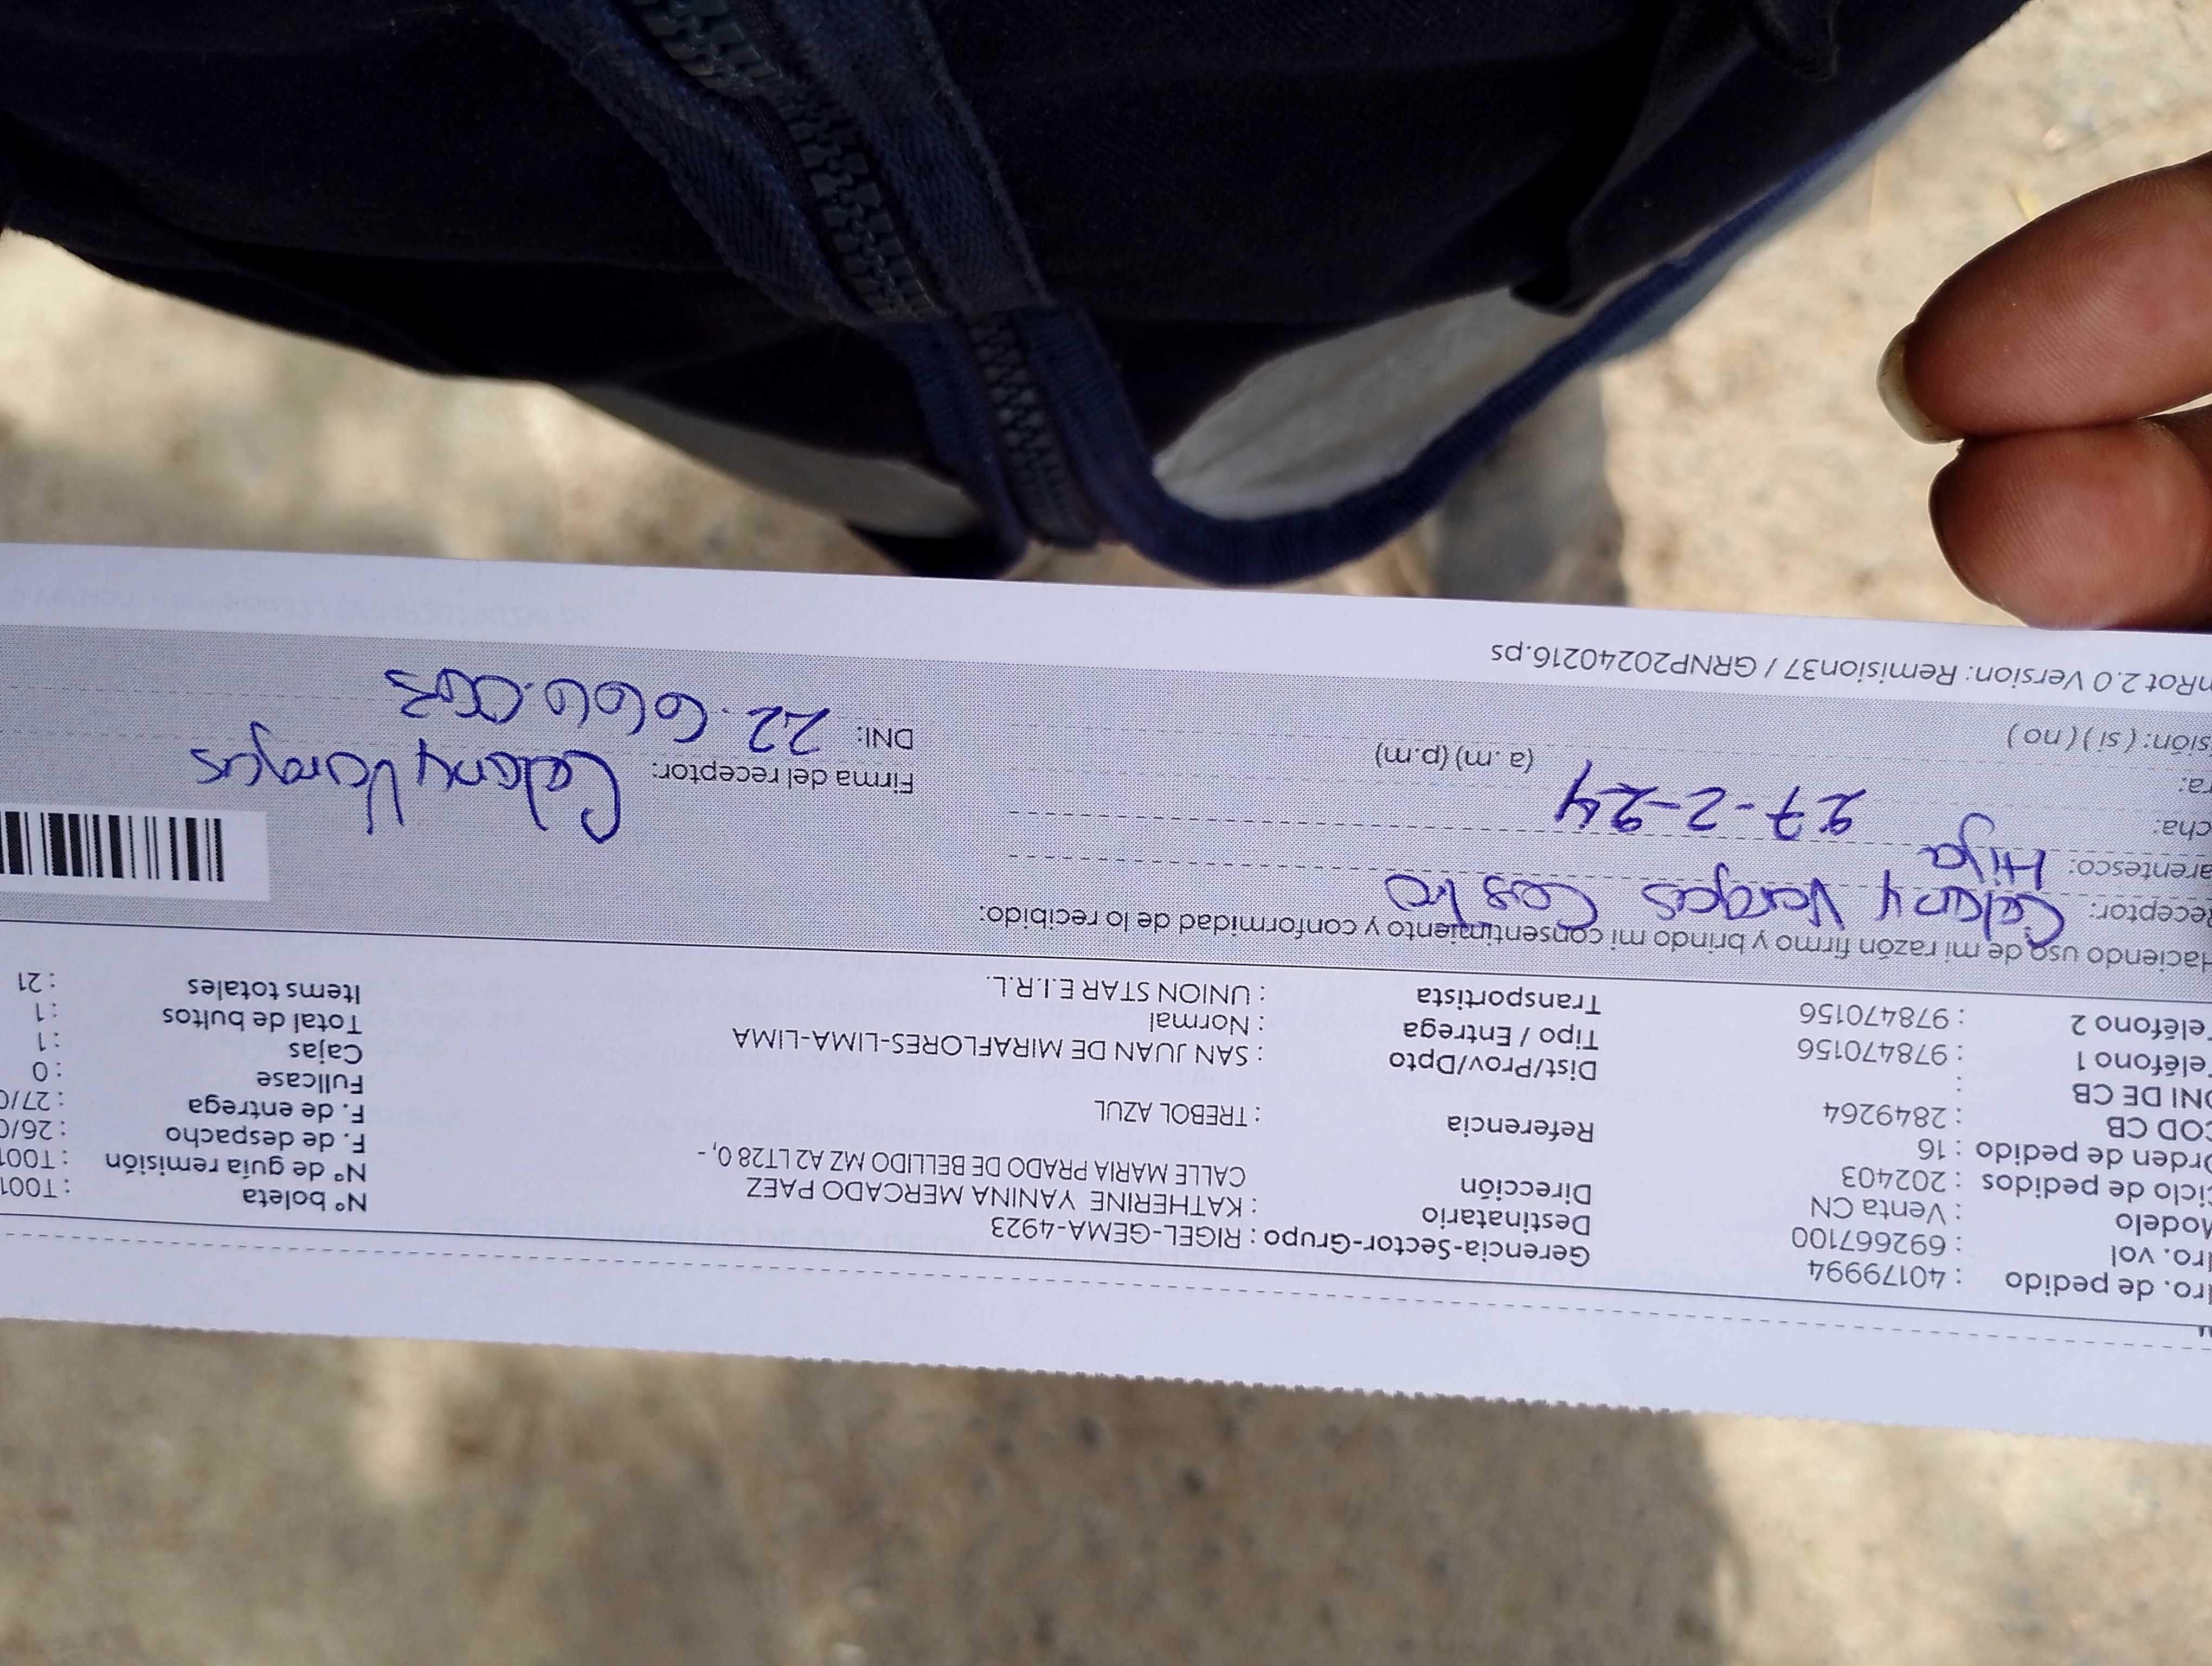 Nro. de pedido : 40179994 Gerencia-Sector-Grupo : RIGEL-GEMA-4923 N° boleta : T001
Nro. vol : 692667100 Destinatario : KATHERINE YANINA MERCADO PAEZ N° de guía remisión : T001
Modelo : Venta CN Dirección CALLE MARIA PRADO DE BELLIDO MZ A2 LT28 0, - F. de despacho : 26/0
Ciclo de pedidos : 202403 F. de entrega : 27/0
Orden de pedido : 16 Referencia : TREBOL AZUL Fullcase : 0
COD CB : 2849264 Cajas : 1
DNI DE CB : Dist/Prov/Dpto : SAN JUAN DE MIRAFLORES-LIMA-LIMA Total de bultos : 1
Teléfono 1 : 978470156 Tipo / Entrega : Normal Items totales : 21
Teléfono 2 : 978470156 Transportista : UNION STAR E.I.R.L.
Haciendo uso de mi razón firmo y brindo mi consentimiento y conformidad de lo recibido:
Receptor: Celany Vargas Castro
arentesco: Hija
cha: 27-2-24 Firma del receptor: Celany Vargas
ra: (a.m) (p.m) DNI: 22.
sión: ( si ) ( no )
nRot 2.0 Version: Remision37 / GRNP20240216.ps